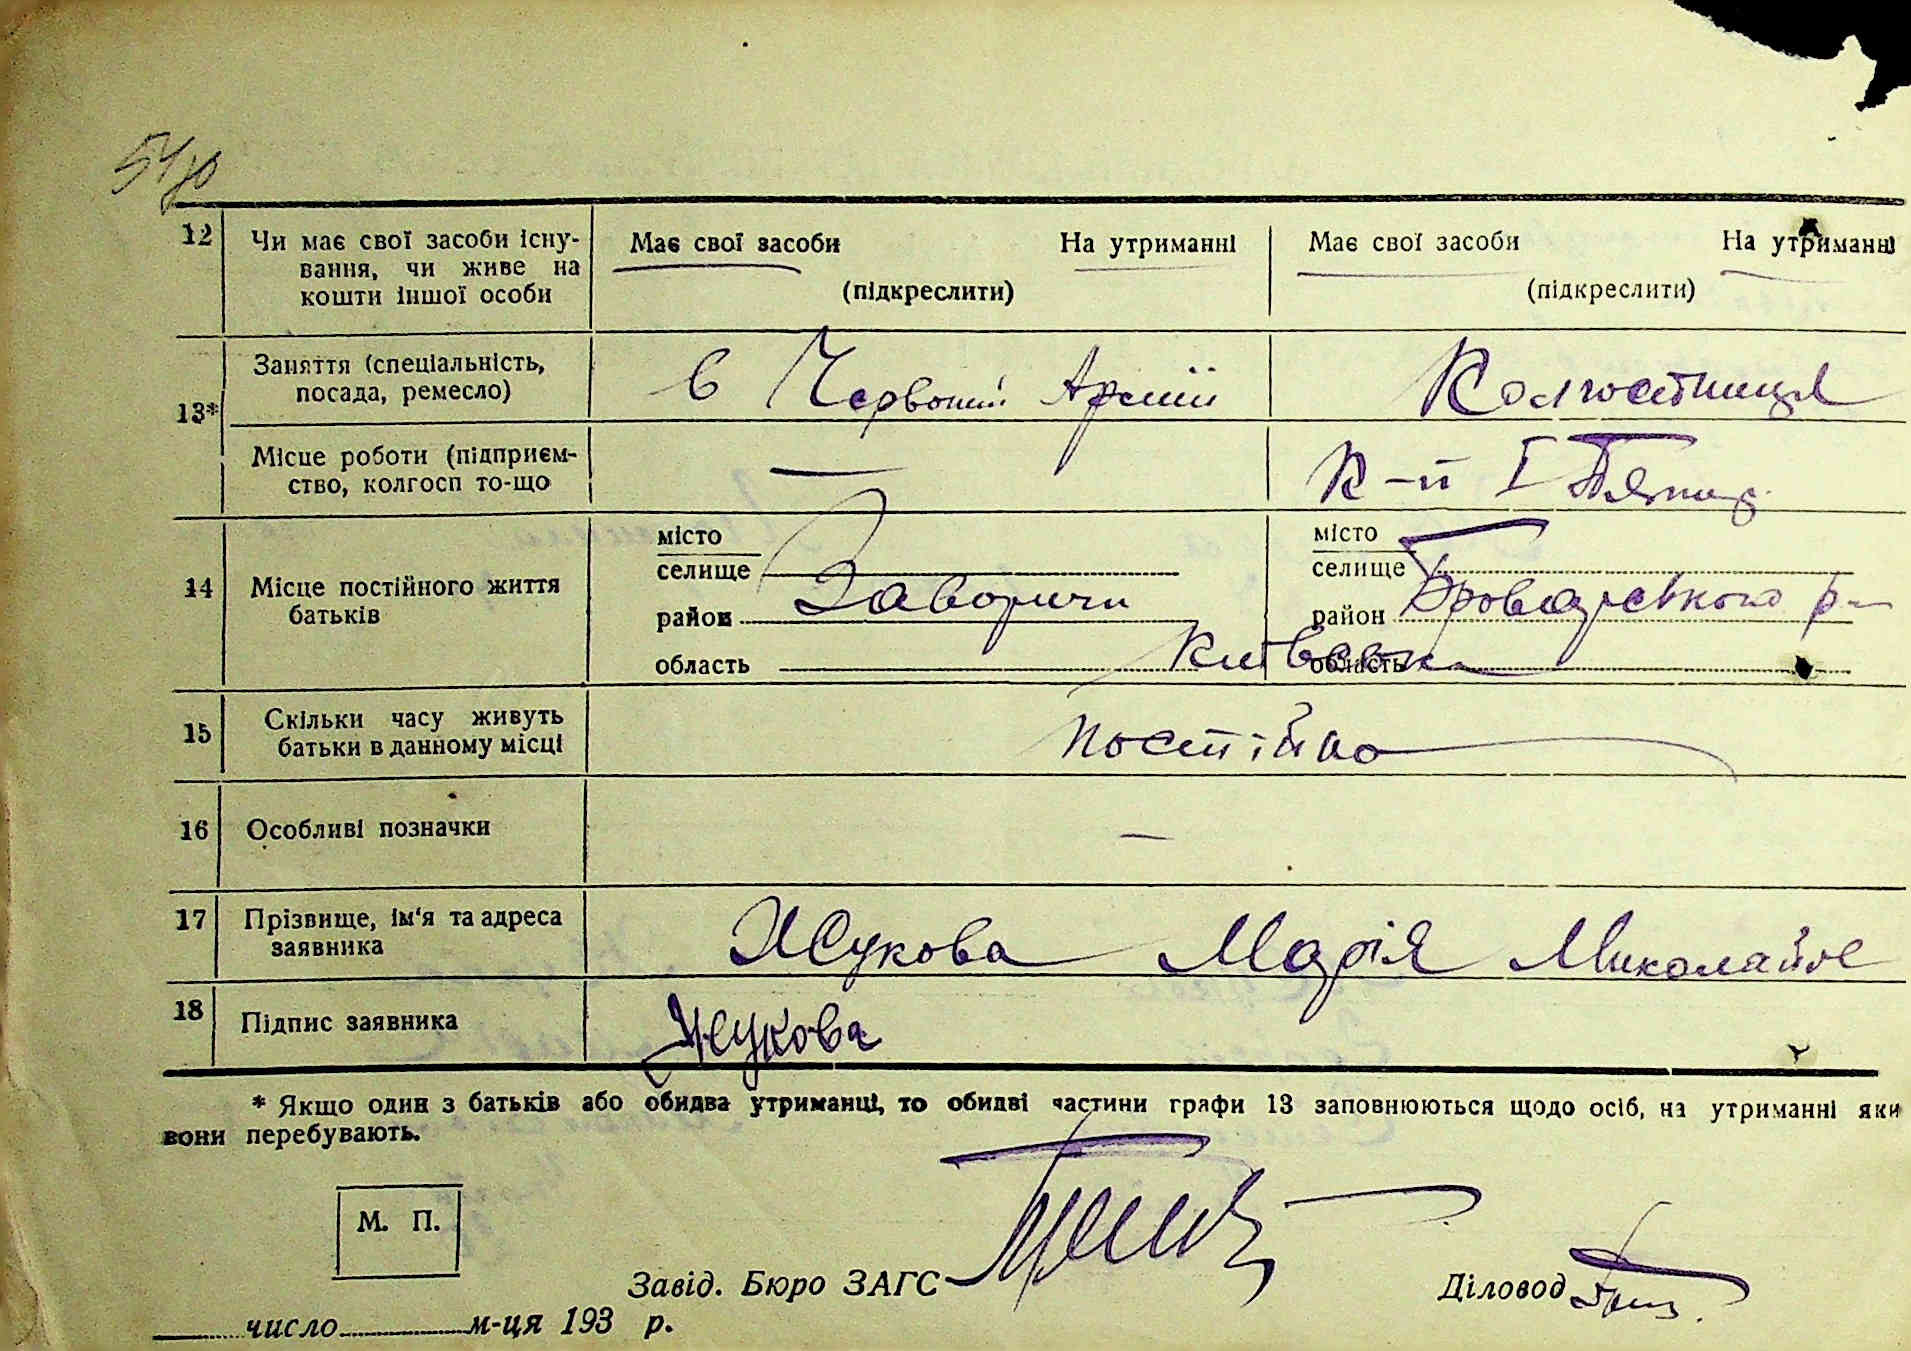 12 Чи має свої засоби існу- Має свої засоби На утриманні Має свої засоби На утриманні
вання, чи живе на
кошти іншої особи (підкреслити) (підкреслити)
13* Заняття (спеціальність, в Червоній Армії Колгоспниця
посада, ремесло)
Місце роботи (підприєм- — К-п І
ство, колгосп то-що
14 Місце постійного життя
батьків
місто місто
селище селище
район Заворичи район Броварського р-
область Київськ область
15 Скільки часу живуть постійно
батьки в данному місці
16 Особливі позначки —
17 Прізвище, ім'я та адреса Жукова Марія Миколайов
заявника
18 Підпис заявника Жукова
* Якщо один з батьків або обидва утриманці, то обидві частини графи 13 заповнюються щодо осіб, на утриманні яки
вони перебувають.
М. П.
Завід. Бюро ЗАГС Діловод
число м-ця 193 р.